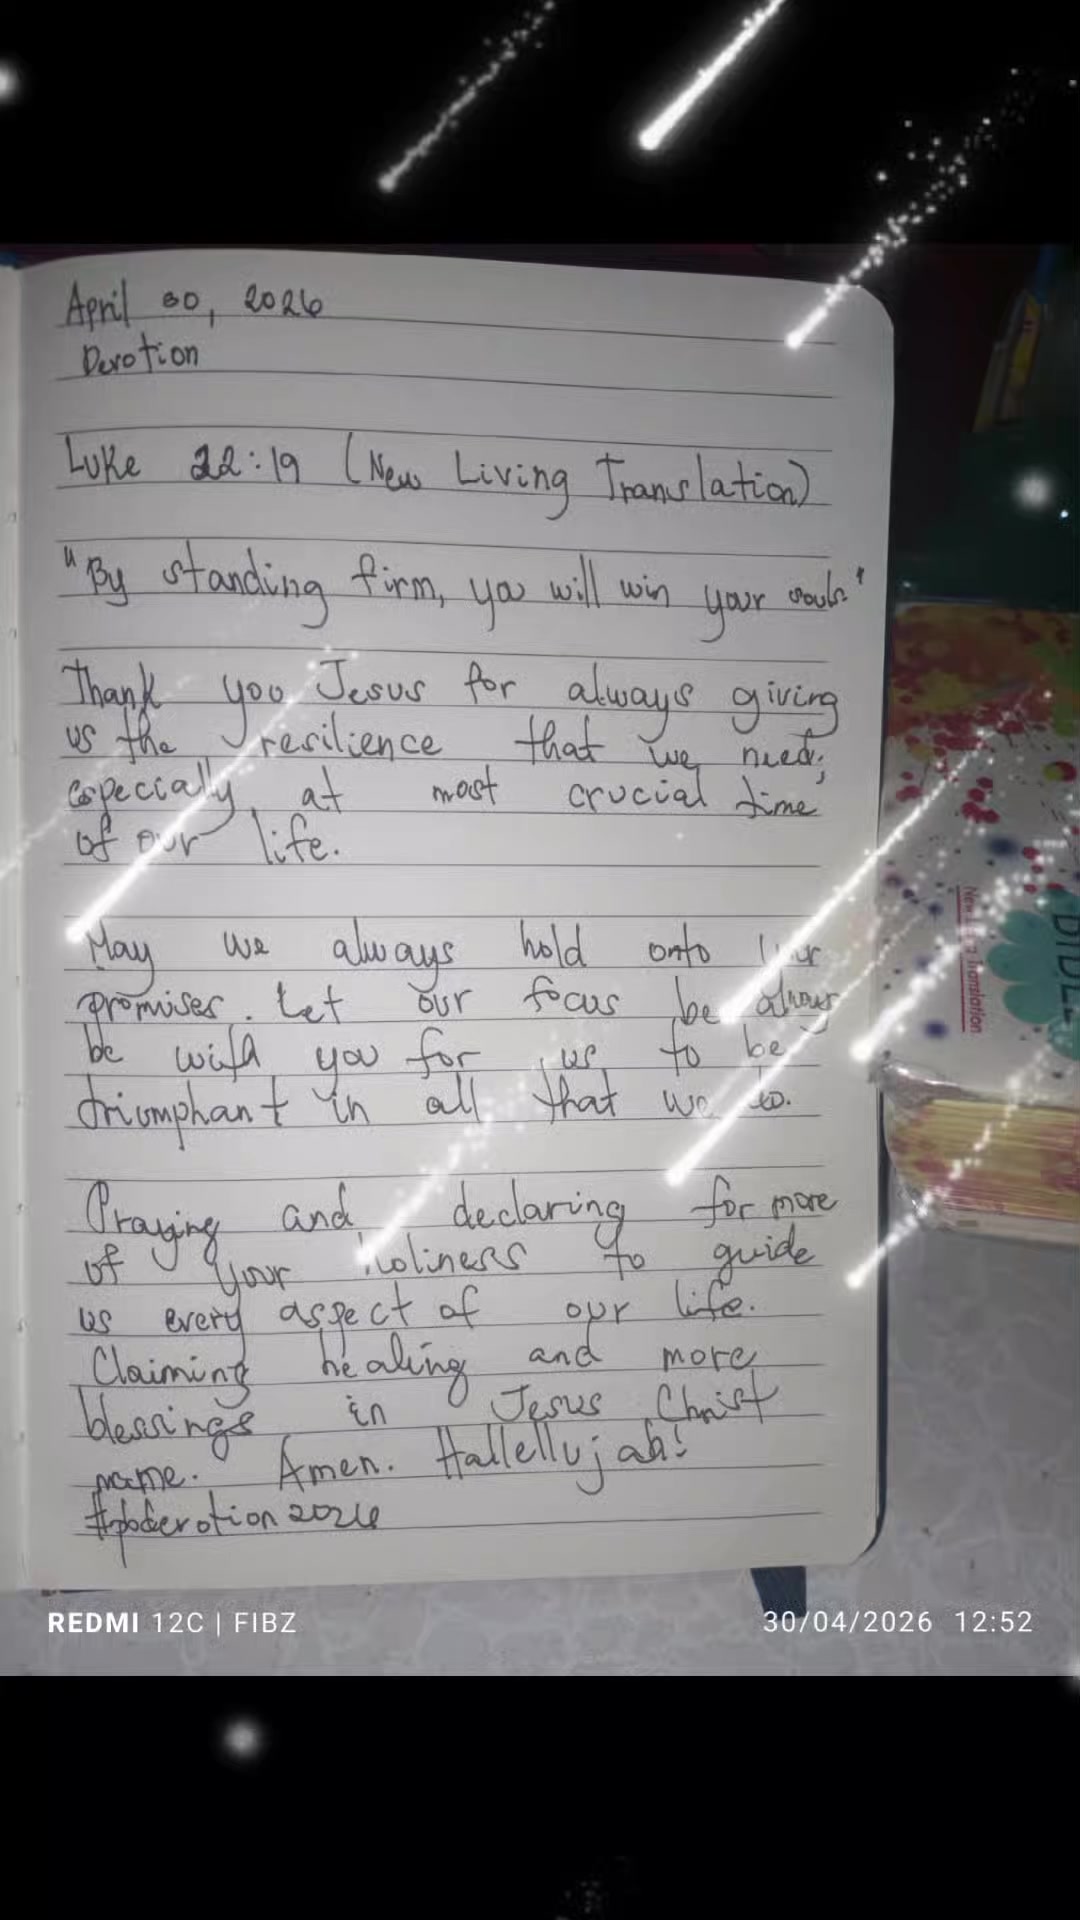 April 30, 2026
Devotion
Luke 22:19 (New Living Translation)
"By standing firm, you will win your souls"
Thank you Jesus for always giving
us the resilience that we need,
especially at most crucial time
of our life.
May we always hold onto your
promises. Let our focus be always
be with you for us to be
triumphant in all that we do.
Praying and declaring for more
of your holiness to guide
us every aspect of our life.
Claiming healing and more
blessings in Jesus Christ
name. Amen. Hallellujah!
New Living Translation
BIBLE
REDMI 12C | FIBZ
30/04/2026 12:52